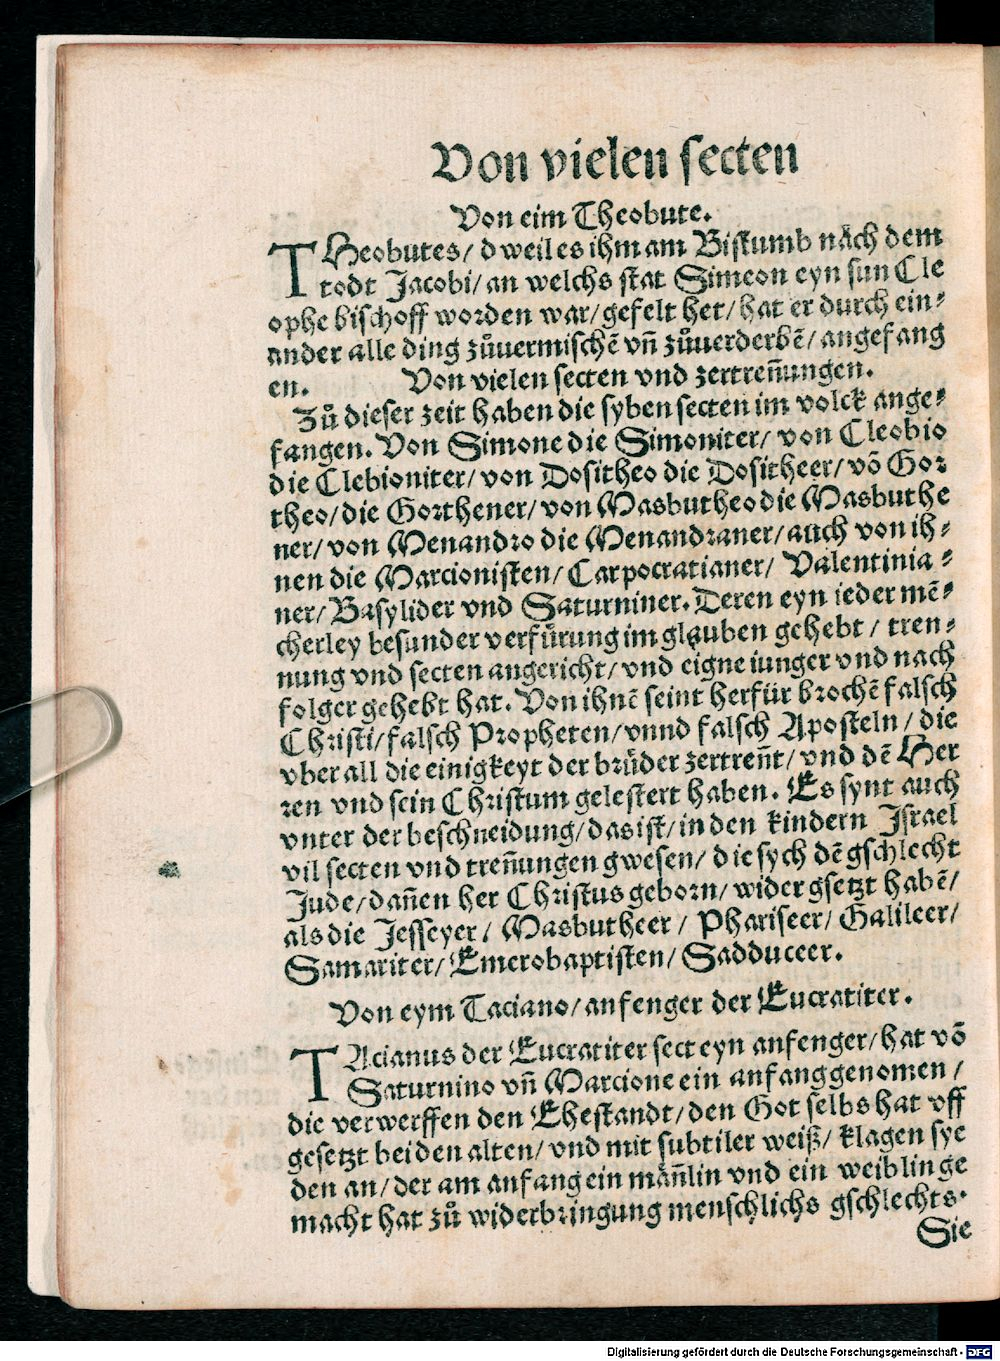 Von vielen secten
Von eim Theobute.
THeobutes/ dweil es ihm am Bistumb näch dem
todt Jacobi/ an welchs stat Simeon eyn sun Cle
ophe bischoff worden war/ gefelt het/ hat er durch ein⸗
ander alle ding zůuermischē vñ zůuerderbē/ angefang
en. Von vielen secten vnd zertreñungen.
Zů dieser zeit haben die syben secten im volck ange⸗
fangen. Von Simone die Simoniter/ von Cleobio
die Clebioniter/ von Dositheo die Dositheer/ vō Gor
theo/ die Gorthener/ von Masbutheo die Masbuthe
ner/ von Menandro die Menandraner/ auch von ih⸗
nen die Marcionisten/ Carpocratianer/ Valentinia⸗
ner/ Basylider vnd Saturniner. Deren eyn ieder mē⸗
cherley besunder verfürung im glauben gehebt/ tren⸗
nung vnd secten angericht/ vnd eigne iunger vnd nach
folger gehebt hat. Von ihnē seint herfür brochē falsch
Christi/ falsch Propheten/ vnnd falsch Aposteln/ die
vber all die einigkeyt der brüder zertreñt/ vnd dē Her
ren vnd sein Christum gelestert haben. Es synt auch
vnter der beschneidung/ das ist/ in den kindern Israel
vil secten vnd treñungen gwesen/ die sych dē gschlecht
Jude/ dañen her Christus geborn/ wider gsetzt habē/
als die Jesseyer/ Masbutheer/ Phariseer/ Galileer/
Samariter/ Emerobaptisten/ Sadduceer.
Von eym Taciano/ anfenger der Eucratiter.
TAcianus der Eucratiter sect eyn anfenger/ hat vō
Saturnino vñ Marcione ein anfang genomen/
die verwerffen den Ehestandt/ den Got selbs hat vff
gesetzt bei den alten/ vnd mit subtiler weiß/ klagen sye
den an/ der am anfang ein mäñlin vnd ein weiblin ge
macht hat zů widerbringung menschlichs gschlechts.
Sie
Digitalisierung gefördert durch die Deutsche Forschungsgemeinschaft - DFG